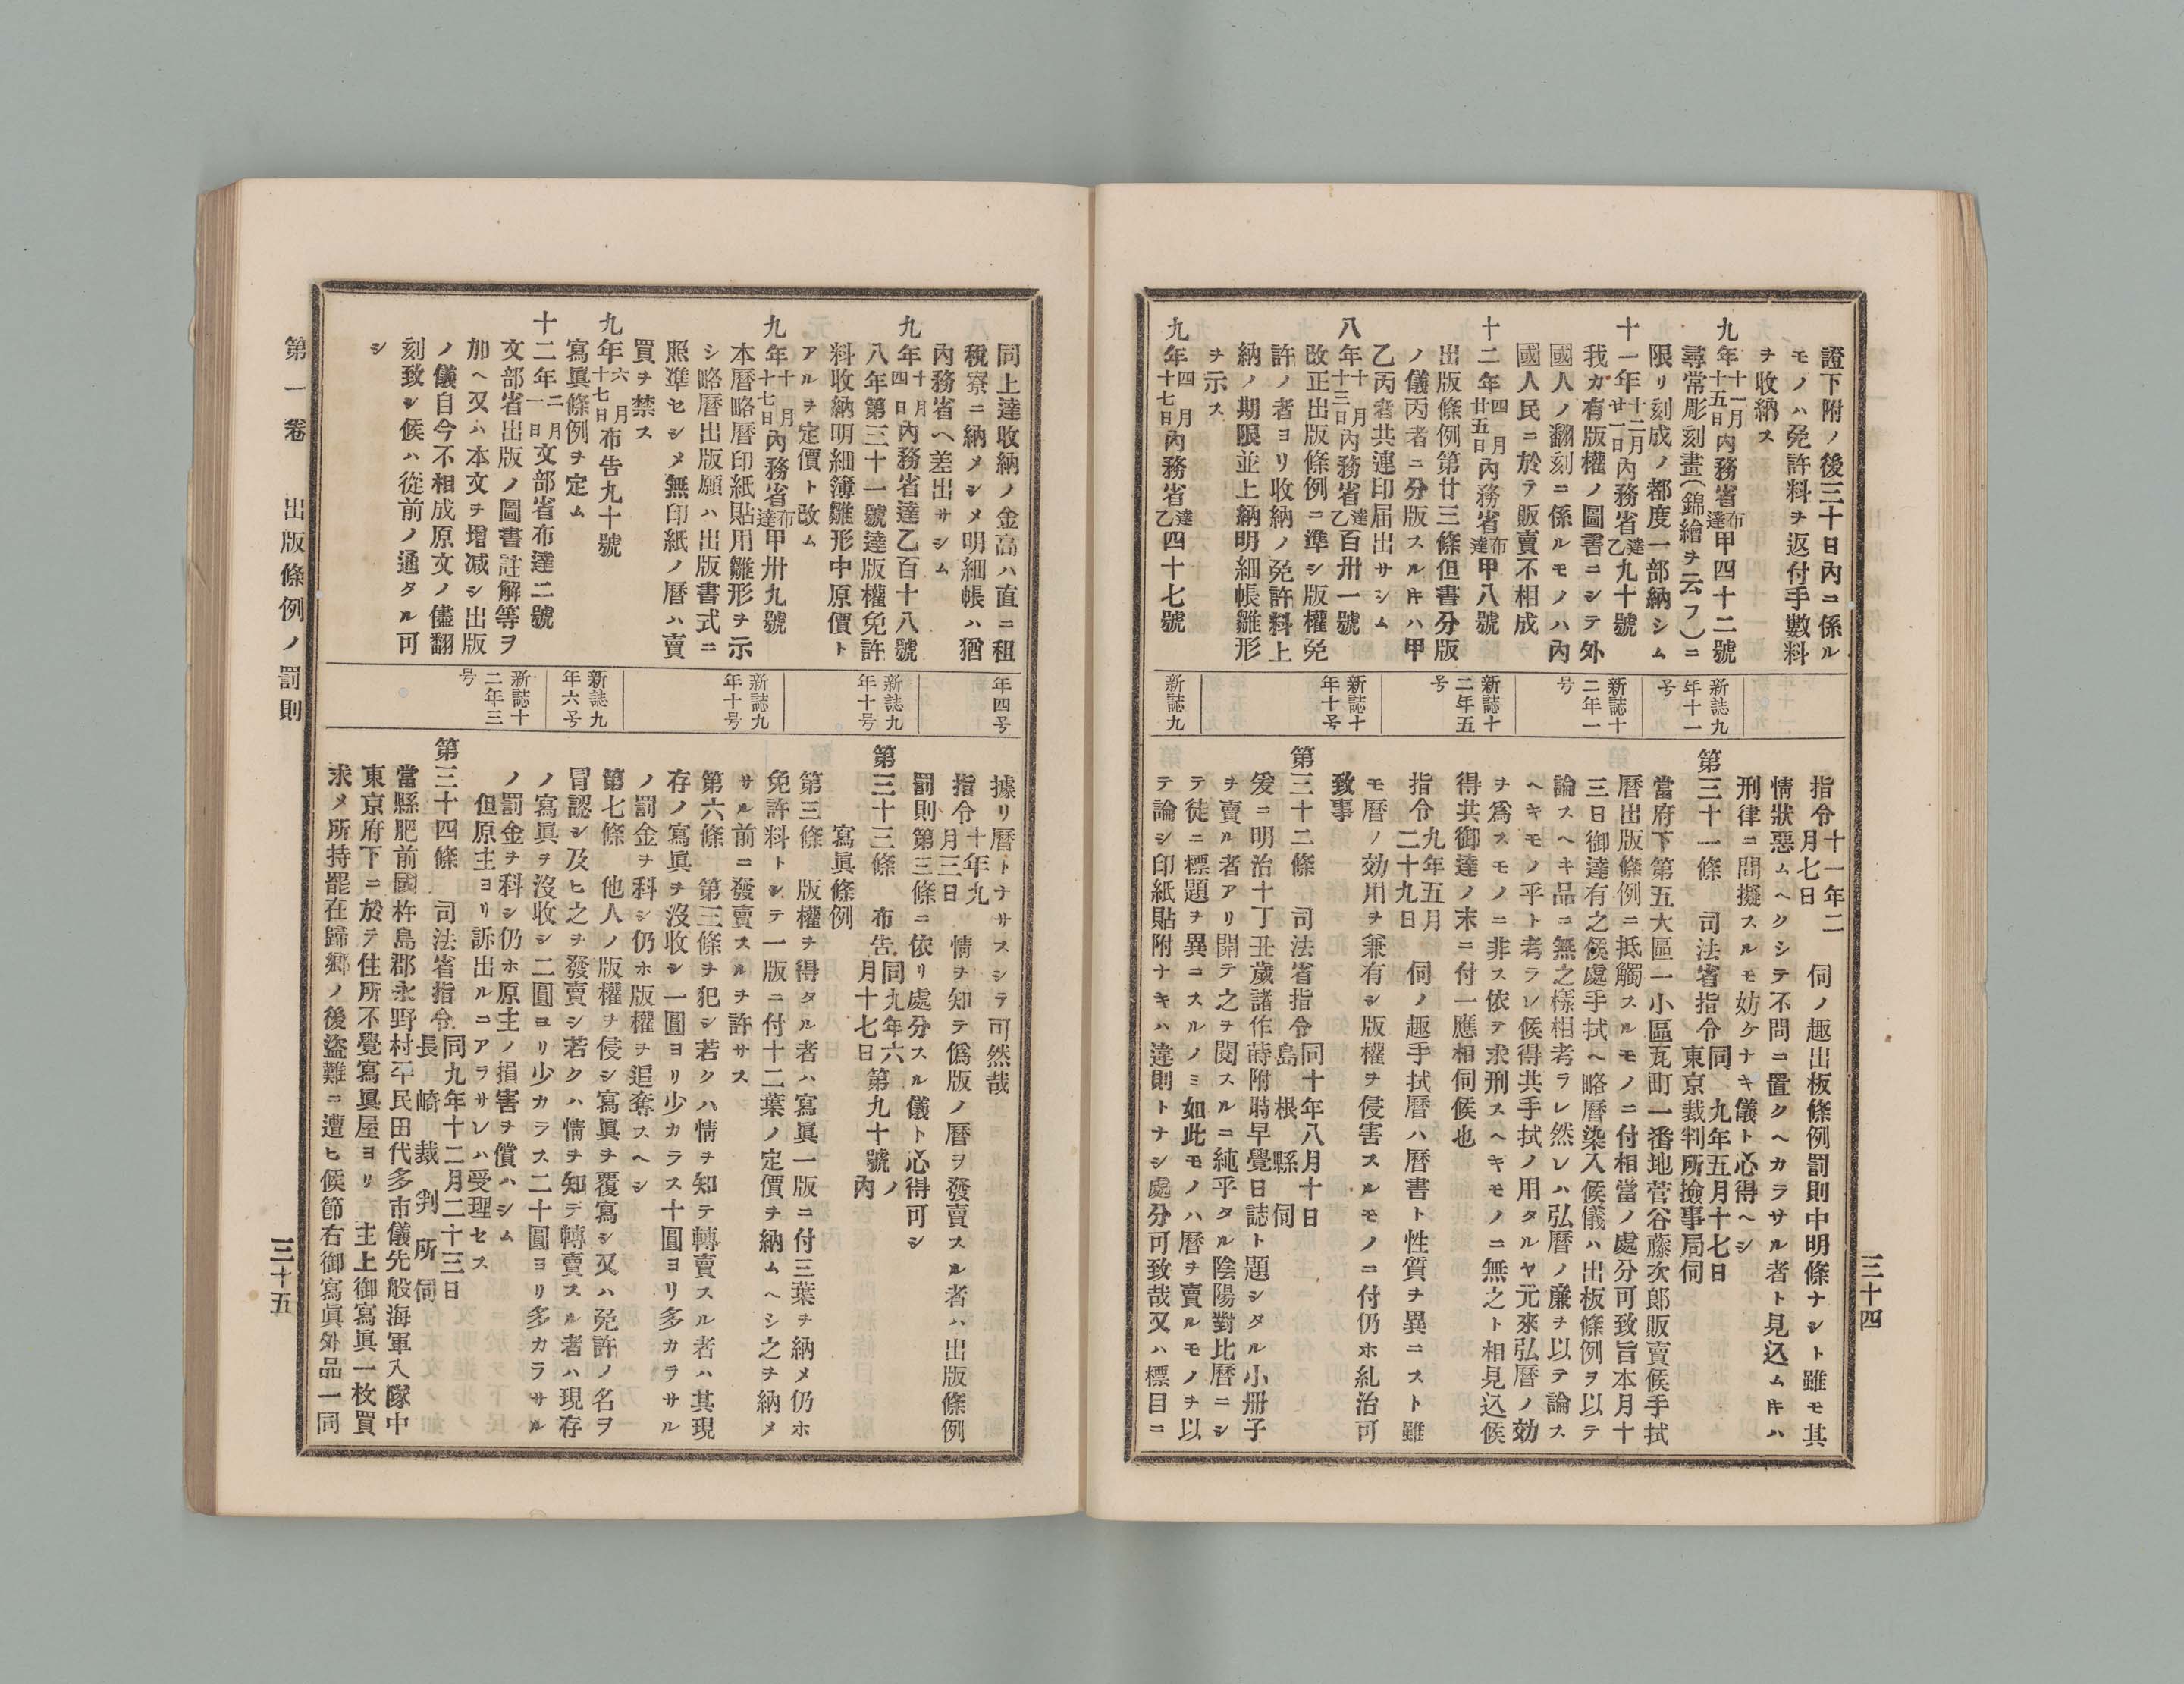 證下附ノ後三十日內ニ係ル
モノハ免許料ヲ返付手數料
ヲ收納ス
九年十一月十五日內務省布達甲四十二號
尋常彫刻畫(錦繪ヲ云フ)ニ
限リ刻成ノ都度一部納シム
十一年十二月廿一日內務省達乙九十號
我カ有版權ノ圖書ニシテ外
國人ノ翻刻ニ係ルモノハ內
國人民ニ於テ販賣不相成
十二年四月廿五日內務省布達甲八號
出版條例第廿三條但書分版
ノ儀丙者ニ分版スルキハ甲
乙丙者共連印届出サシム
八年十月十三日內務省達乙百卅一號
改正出版條例ニ準シ版權免
許ノ者ヨリ收納ノ免許料上
納ノ期限並上納明細帳雛形
ヲ示ス
九年四月十七日內務省達乙四十七號
新誌九年十一号
新誌十二年一号
新誌十二年五号
新誌十年十号
新誌九
指令十一年二月七日 伺ノ趣出板條例罰則中明條ナシト雖モ其
情狀惡ムヘクシテ不問ニ置クヘカラサル者ト見込ムキハ
刑律ニ問擬スルモ妨ケナキ儀ト心得ヘシ
第三十一條 司法省指令同九年五月十七日東京裁判所撿事局伺
當府下第五大區一小區瓦町一番地菅谷藤次郎販賣候手拭
曆出版條例ニ抵觸スルモノニ付相當ノ處分可致旨本月十
三日御達有之候處手拭ヘ略曆染入候儀ハ出板條例ヲ以テ
論スヘキ品ニ無之樣相考ラレ然レハ弘曆ノ廉ヲ以テ論ス
ヘキモノ乎ト考ラレ候得共手拭ノ用タルヤ元來弘曆ノ効
ヲ爲スモノニ非ス依テ求刑スヘキモノニ無之ト相見込候
得共御達ノ末ニ付一應相伺候也
指令九年五月二十九日 伺ノ趣手拭曆ハ曆書ト性質ヲ異ニスト雖
モ曆ノ効用ヲ兼有シ版權ヲ侵害スルモノニ付仍ホ糺治可
致事
第三十二條 司法省指令同十年八月十日島根縣伺
爰ニ明治十丁丑歲諸作蒔附時早覺日誌ト題シタル小册子
ヲ賣ル者アリ開テ之ヲ閱スルニ純乎タル陰陽對比曆ニシ
テ徒ニ標題ヲ異ニスルノミ如此モノハ曆ヲ賣ルモノヲ以
テ論シ印紙貼附ナキハ違則トナシ處分可致哉又ハ標目ニ
三十四
同上達收納ノ金高ハ直ニ租
稅寮ニ納メシメ明細帳ハ猶
內務省ヘ差出サシム
九年十月四日內務省達乙百十八號
八年第三十一號達版權免許
料收納明細簿雛形中原價ト
アルヲ定價ト改ム
九年十月十七日內務省布達甲卅九號
本曆略曆印紙貼用雛形ヲ示
シ略曆出版願ハ出版書式ニ
照準セシメ無印紙ノ曆ハ賣
買ヲ禁ス
九年六月十七日布告九十號
寫眞條例ヲ定ム
十二年二月一日文部省布達二號
文部省出版ノ圖書註解等ヲ
加ヘ又ハ本文ヲ增减シ出版
ノ儀自今不相成原文ノ儘翻
刻致シ候ハ從前ノ通タル可
シ
年四号
新誌九年十号
新誌九年十号
新誌九年六号
新誌十二年三号
據リ曆トナサスシテ可然哉
指令十年九月三日 情ヲ知テ僞版ノ曆ヲ發賣スル者ハ出版條例
罰則第三條ニ依リ處分スル儀ト心得可シ
第三十三條 布告同九年六月十七日第九十號ノ內
寫眞條例
第三條 版權ヲ得タル者ハ寫眞一版ニ付三葉ヲ納メ仍ホ
免許料トシテ一版ニ付十二葉ノ定價ヲ納ムヘシ之ヲ納メ
サル前ニ發賣スルヲ許サス
第六條 第三條ヲ犯シ若クハ情ヲ知テ轉賣スル者ハ其現
存ノ寫眞ヲ沒收シ一圓ヨリ少カラス十圓ヨリ多カラサル
ノ罰金ヲ科シ仍ホ版權ヲ追奪スヘシ
第七條 他人ノ版權ヲ侵シ寫眞ヲ覆寫シ又ハ免許ノ名ヲ
冒認シ及ヒ之ヲ發賣シ若クハ情ヲ知テ轉賣スル者ハ現存
ノ寫眞ヲ沒收シ二圓ヨリ少カラス二十圓ヨリ多カラサル
ノ罰金ヲ科シ仍ホ原主ノ損害ヲ償ハシム
但原主ヨリ訴出ルコアラサレハ受理セス
第三十四條 司法省指令同九年十二月二十三日長崎裁判所伺
當縣肥前國杵島郡永野村平民田代多市儀先般海軍入隊中
東京府下ニ於テ住所不覺寫眞屋ヨリ 主上御寫眞一枚買
求メ所持罷在歸鄕ノ後盜難ニ遭ヒ候節右御寫眞外品一同
第一卷 出版條例ノ罰則
三十五